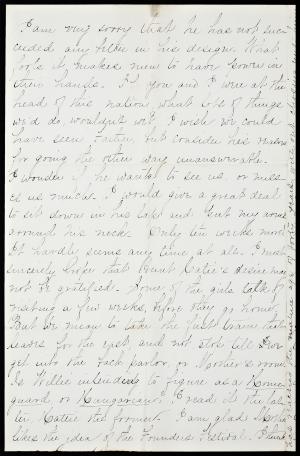 I am very sorry that he has not suc-
ceeded any better in his designs. What
fools it makes men to have power in
their hands. If you and I were at the
head of this nation what lots of things
we'd do, wouldn't we? I wish we could
have seen Father, but consider his reasons
for going the other way unanswerable.
I wonder if he wanted to see us, or miss-
es us much. I would give a great deal
to sit down in his lap and put my arms
around his neck. Only ten weeks more.
It hardly seems any time at all. I must
sincerely hope that Aunt Katie's desire may
not be gratified. Some of the girls talk of
visiting a few weeks, before they go home,
But we mean to take the first train that
leaves for the east, and not stop till I've
got into the back parlor, or Mother's room.
Is Willie intending to figure as a Home
guard, or Hungarian? I read it the lat-
ter, Hattie the former. I am glad Mother
likes the idea of the Founders Festival. I